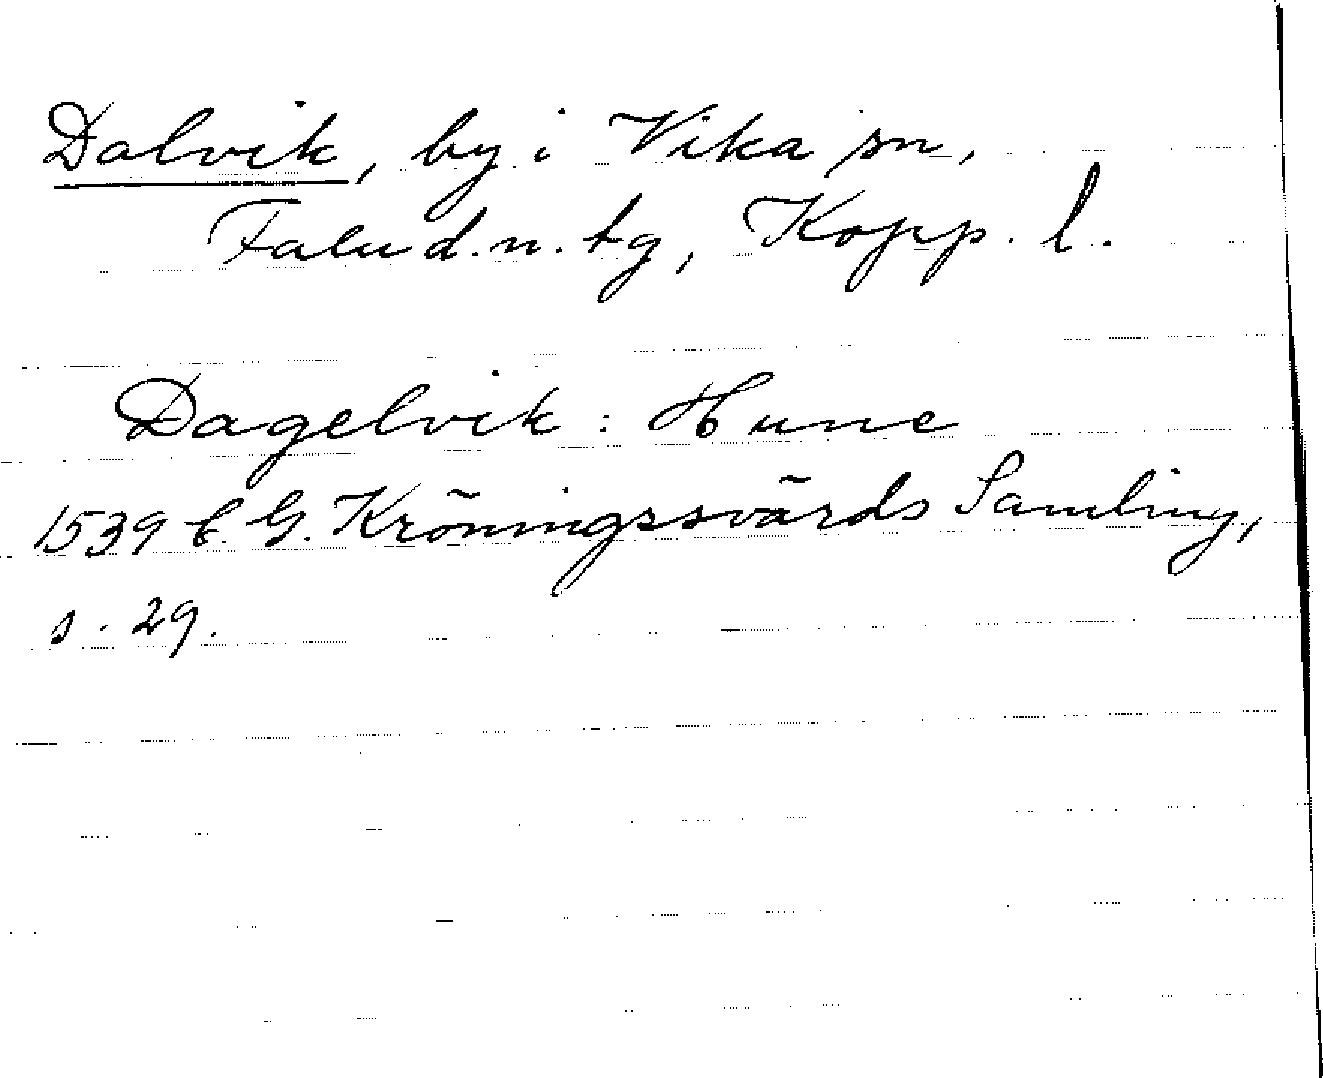 Dalvik, by i Vika sn,
Falu d. n. tg, Kopp. l.
Dagelvik: Hune
1539 C. G. Kröningssvärds Samling,
s. 29.